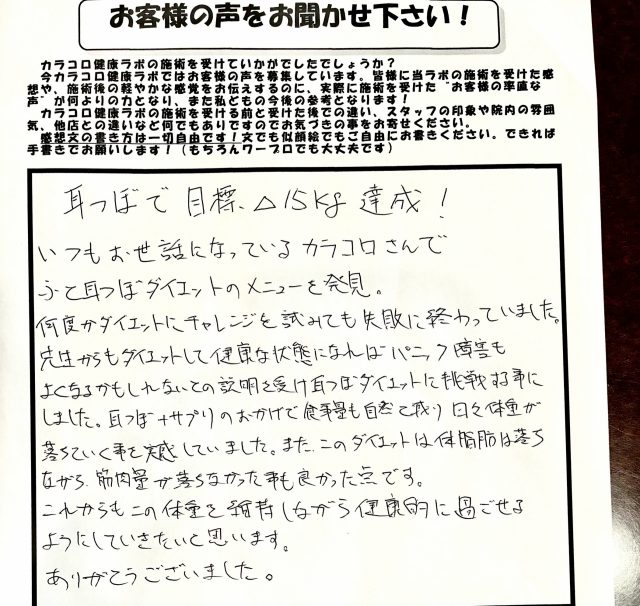 お客様の声をお聞かせ下さい！
カラコロ健康ラボの施術を受けていかがでしたでしょうか？
今カラコロ健康ラボではお客様の声を募集しています。皆様に当ラボの施術を受けた感
想や、施術後の軽やかな感覚をお伝えするのに、実際に施術を受けた“お客様の率直な
声”が何よりの力となり、また私どもの今後の参考となります！
カラコロ健康ラボの施術を受ける前と受けた後での違い、スタッフの印象や院内の雰囲
気、他店との違いなど何でもありですのでお気づきの事をお寄せください。
感想文の書き方は一切自由です！文でも似顔絵でもご自由にお書きください。できれば
手書きでお願いします！（もちろんワープロでも大丈夫です）
耳つぼで目標△15kg達成！
いつもお世話になっているカラコロさんで
ふと耳つぼダイエットのメニューを発見。
何度かダイエットにチャレンジを試みても失敗に終わっていました。
先生からもダイエットして健康な状態になればパニック障害も
よくなるかもしれないとの説明を受け耳つぼダイエットに挑戦する事に
しました。耳つぼ+サプリのおかげで食事量も自然と減り日々体重が
落ちていく事を実感していました。また、このダイエットは体脂肪は落ち
ながら、筋肉量が落ちなかった事も良かった点です。
これからもこの体重を維持しながら健康的に過ごせる
ようにしていきたいと思います。
ありがとうございました。